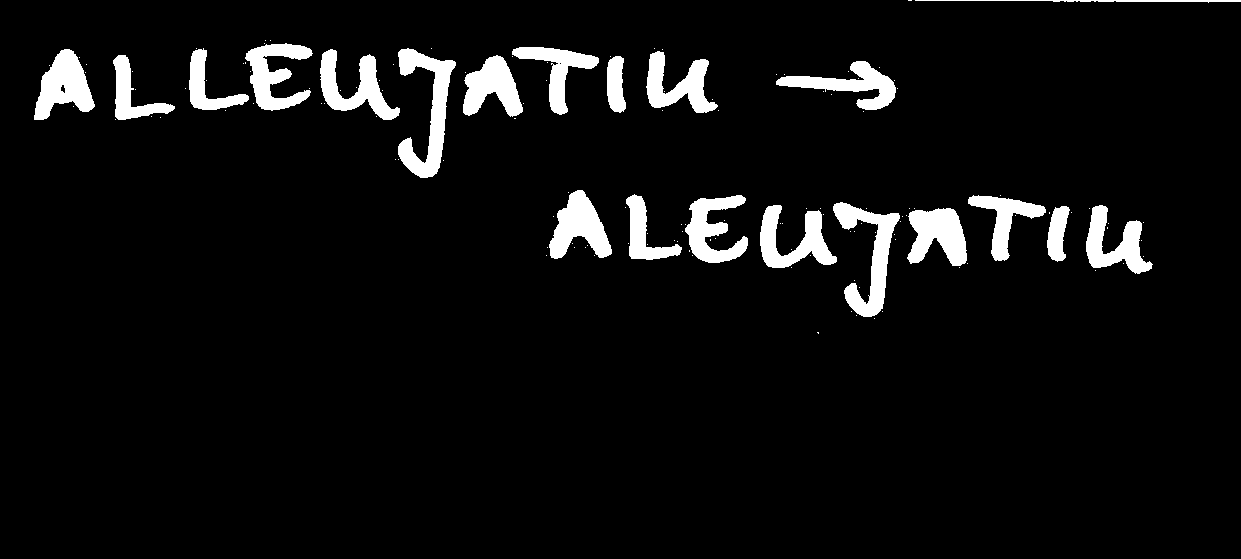 ALLEUJATIU →
ALEUJATIU